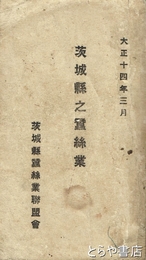 大正十四年三月
茨城縣之蠶絲業
茨城縣蠶絲業聯盟會
とらや書房